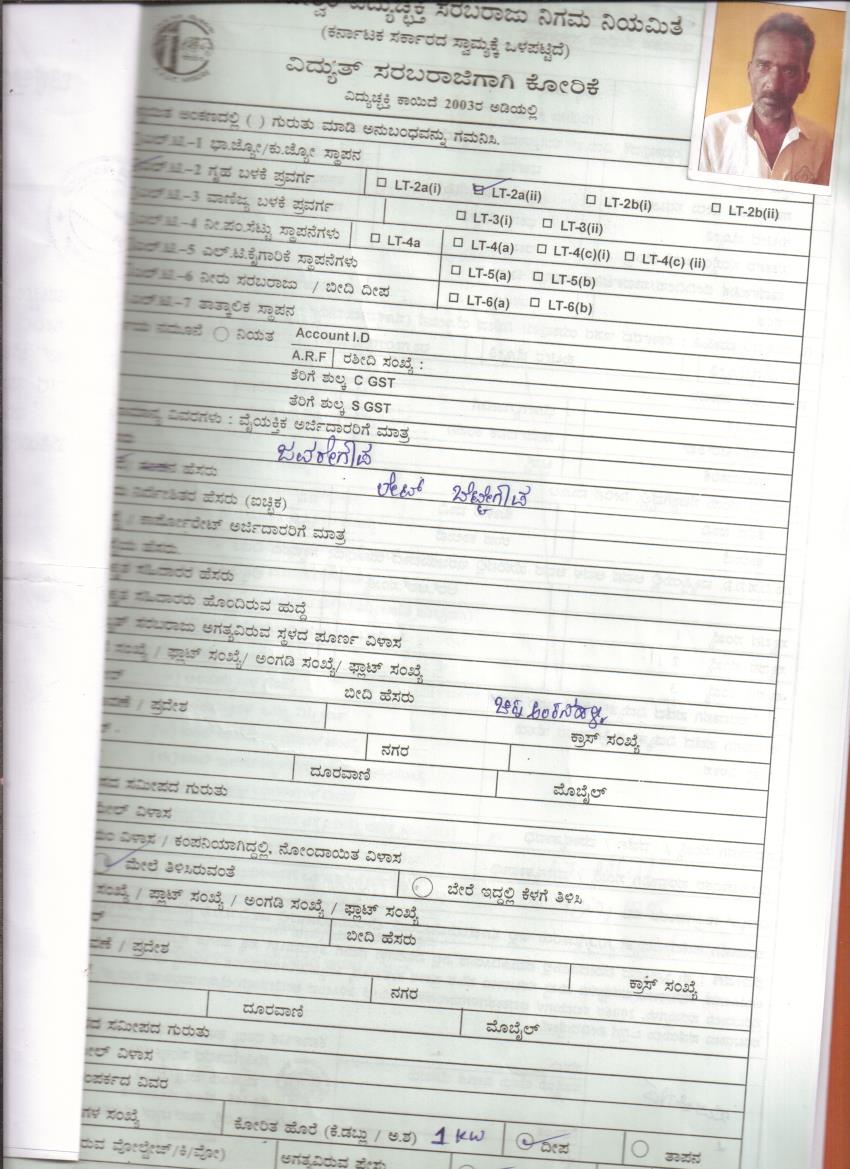 ವಿದ್ಯುಚ್ಛಕ್ತಿ ಸರಬರಾಜು ನಿಗಮ ನಿಯಮಿತ
(ಕರ್ನಾಟಕ ಸರ್ಕಾರದ ಸ್ವಾಮ್ಯಕ್ಕೆ ಒಳಪಟ್ಟಿದೆ)
ವಿದ್ಯುತ್ ಸರಬರಾಜಿಗಾಗಿ ಕೋರಿಕೆ
ವಿದ್ಯುಚ್ಛಕ್ತಿ ಕಾಯಿದೆ 2003ರ ಅಡಿಯಲ್ಲಿ
ಅಂಕಣದಲ್ಲಿ ( ) ಗುರುತು ಮಾಡಿ ಅನುಬಂಧವನ್ನು ಗಮನಿಸಿ.
-1 ಭಾ.ಜ್ಯೋ/ಕು.ಜ್ಯೋ ಸ್ಥಾಪನ
-2 ಗೃಹ ಬಳಕೆ ಪ್ರವರ್ಗ LT-2a(i) LT-2a(ii) LT-2b(i) LT-2b(ii)
-3 ವಾಣಿಜ್ಯ ಬಳಕೆ ಪ್ರವರ್ಗ LT-3(i) LT-3(ii)
-4 ನೀ.ಪಂ.ಸೆಟ್ಟು ಸ್ಥಾಪನೆಗಳು LT-4a LT-4(a) LT-4(c)(i) LT-4(c) (ii)
-5 ಎಲ್.ಟಿ.ಕೈಗಾರಿಕೆ ಸ್ಥಾಪನೆಗಳು LT-5(a) LT-5(b)
-6 ನೀರು ಸರಬರಾಜು / ಬೀದಿ ದೀಪ LT-6(a) LT-6(b)
-7 ತಾತ್ಕಾಲಿಕ ಸ್ಥಾಪನ
ನಮೂನೆ ನಿಯತ Account I.D
A.R.F ರಶೀದಿ ಸಂಖ್ಯೆ :
ತೆರಿಗೆ ಶುಲ್ಕ C GST
ತೆರಿಗೆ ಶುಲ್ಕ S GST
ವಿವರಗಳು : ವೈಯಕ್ತಿಕ ಅರ್ಜಿದಾರರಿಗೆ ಮಾತ್ರ
ಜವರೇಗೌಡ
ಹೆಸರು ಲೇಟ್ ಬೆಟ್ಟೇಗೌಡ
ನಿರ್ದೇಶಿತರ ಹೆಸರು (ಐಚ್ಛಿಕ)
/ ಕಾರ್ಪೋರೇಟ್ ಅರ್ಜಿದಾರರಿಗೆ ಮಾತ್ರ
ಹೆಸರು.
ಸಹಿದಾರರ ಹೆಸರು
ಸಹಿದಾರರು ಹೊಂದಿರುವ ಹುದ್ದೆ
ಸರಬರಾಜು ಅಗತ್ಯವಿರುವ ಸ್ಥಳದ ಪೂರ್ಣ ವಿಳಾಸ
ಸಂಖ್ಯೆ / ಪ್ಲಾಟ್ ಸಂಖ್ಯೆ/ ಅಂಗಡಿ ಸಂಖ್ಯೆ/ ಫ್ಲಾಟ್ ಸಂಖ್ಯೆ
ಬೀದಿ ಹೆಸರು
/ ಪ್ರದೇಶ ಕ್ರಾಸ್ ಸಂಖ್ಯೆ
ನಗರ
ದೂರವಾಣಿ ಮೊಬೈಲ್
ಸಮೀಪದ ಗುರುತು
ವಿಳಾಸ
ವಿಳಾಸ / ಕಂಪನಿಯಾಗಿದ್ದಲ್ಲಿ, ನೋಂದಾಯಿತ ವಿಳಾಸ
ಮೇಲೆ ತಿಳಿಸಿರುವಂತೆ ಬೇರೆ ಇದ್ದಲ್ಲಿ ಕೆಳಗೆ ತಿಳಿಸಿ
ಸಂಖ್ಯೆ / ಪ್ಲಾಟ್ ಸಂಖ್ಯೆ / ಅಂಗಡಿ ಸಂಖ್ಯೆ / ಫ್ಲಾಟ್ ಸಂಖ್ಯೆ
ಬೀದಿ ಹೆಸರು
/ ಪ್ರದೇಶ ಕ್ರಾಸ್ ಸಂಖ್ಯೆ
ನಗರ
ದೂರವಾಣಿ ಮೊಬೈಲ್
ಸಮೀಪದ ಗುರುತು
ವಿಳಾಸ
ವಿವರ
ಸಂಖ್ಯೆ ಕೋರಿತ ಹೊರೆ (ಕೆ.ಡಬ್ಲು / ಅ.ಶ) 1 KW ದೀಪ ತಾಪನ